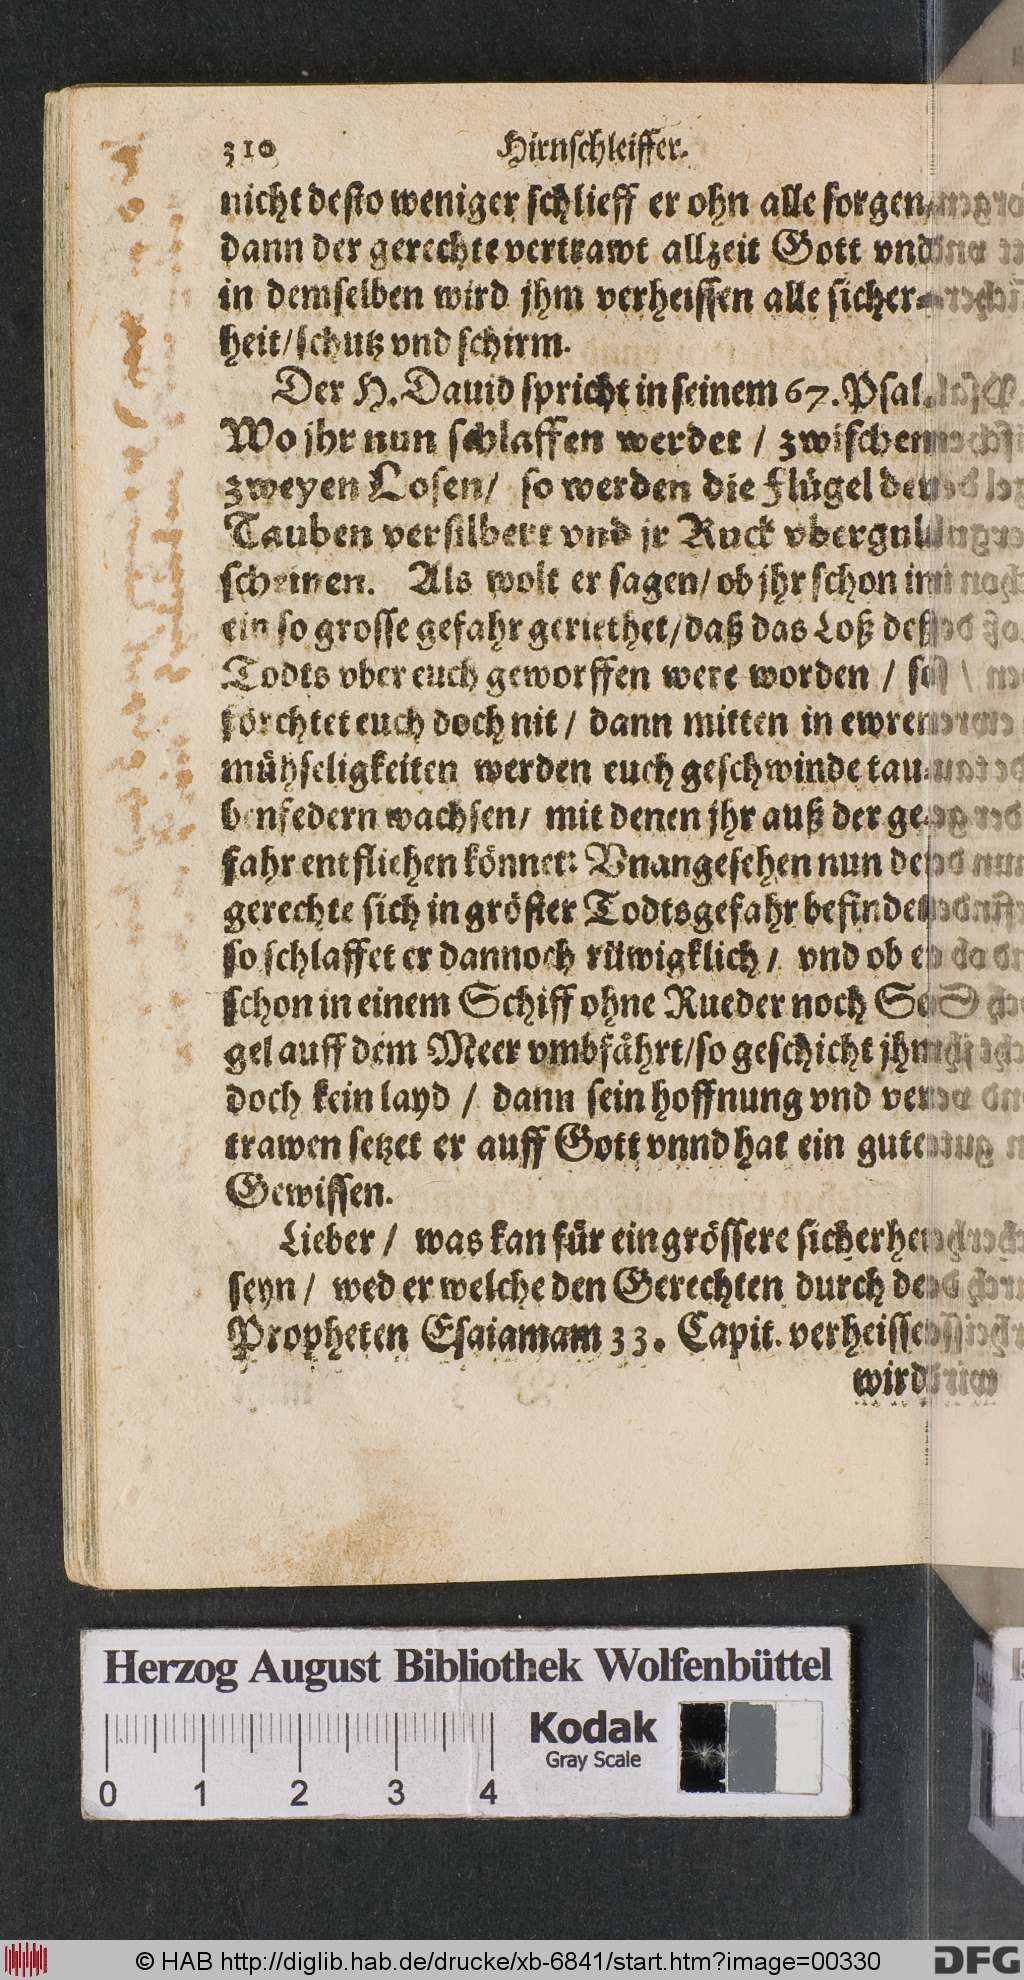 310 Hirnschleiffer.
nicht desto weniger schlieff er ohn alle sorgen,
dann der gerechte vertrawt allzeit Gott vnd
in demselben wird jhm verheissen alle sicher-
heit/schutz vnd schirm.
Der H. Dauid spricht in seinem 67. Psal.
Wo jhr nun schlaffen werdet / zwischen
zweyen Losen/ so werden die flügel der
Tauben versilbert vnd jr Ruck vbergul
scheinen. Als wolt er sagen/ ob jhr schon in
ein so grosse gefahr geriethet/ daß das Loß deß
Todts vber euch geworffen were worden / so
förchtet euch doch nit / dann mitten in ewren
mühseligkeiten werden euch geschwinde tau-
benfedern wachsen/ mit denen jhr auß der ge-
fahr entfliehen könnet: Vnangesehen nun der
gerechte sich in gröster Todtsgefahr befindet
so schlaffet er dannoch rüwigklich / vnd ob er
schon in einem Schiff ohne Rueder noch Se-
gel auff dem Meer vmbfährt/so geschicht jhm
doch kein layd / dann sein hoffnung vnd ver-
trawen setzet er auff Gott vnnd hat ein gutes
Gewissen.
Lieber / was kan für ein grössere sicherheit
seyn / wed er welche den Gerechten durch den
Propheten Esaiamam 33. Capit. verheissen
wird
Herzog August Bibliothek Wolfenbüttel
0 1 2 3 4
Kodak
Gray Scale
© HAB http://diglib.hab.de/drucke/xb-6841/start.htm?image=00330
DFG